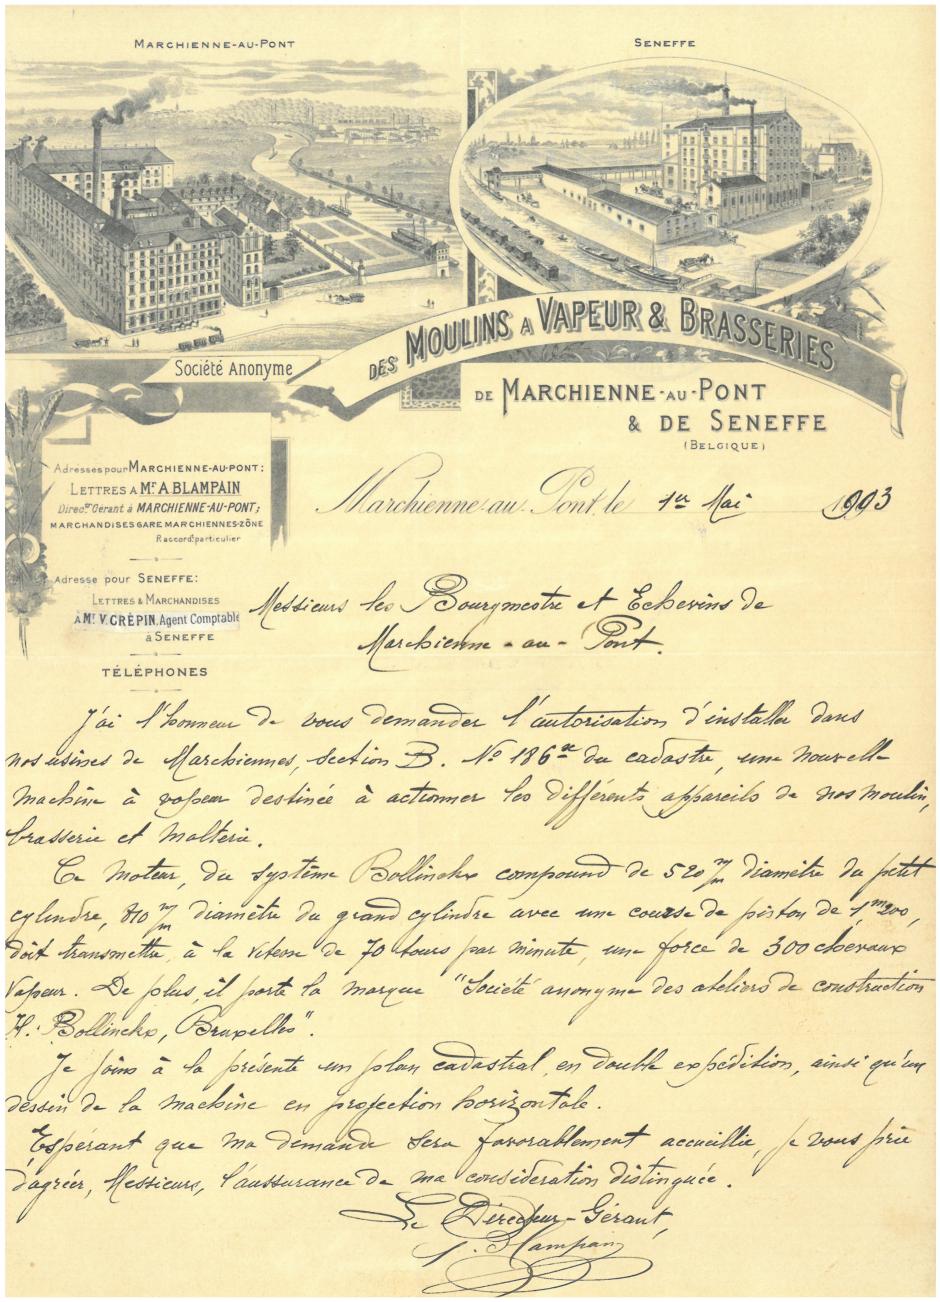 MARCHIENNE-AU-PONT
SENEFFE
Société Anonyme
DES MOULINS A VAPEUR & BRASSERIES
DE MARCHIENNE-AU-PONT
& DE SENEFFE
(BELGIQUE)
Adresses pour MARCHIENNE-AU-PONT:
LETTRES A Mr. A. BLAMPAIN
Direcr. Gérant à MARCHIENNE-AU-PONT;
MARCHANDISES GARE MARCHIENNES-ZÔNE
Raccordt. particulier
Adresse pour SENEFFE:
LETTRES & MARCHANDISES
A Mr. V. CRÉPIN, Agent Comptable
à SENEFFE
TÉLÉPHONES
Marchienne-au-Pont, le 1er Mai 1903
Messieurs les Bourgmestre et Echevins de
Marchienne-au-Pont.
J'ai l'honneur de vous demander l'autorisation d'installer dans
nos usines de Marchiennes, section B. No 186 du cadastre, une nouvelle
machine à vapeur destinée à actionner les différents appareils de nos moulin,
brasserie et malterie.
Ce moteur, du système Bollinckx compound de 520 m/m diamètre du petit
cylindre, 810 m/m diamètre du grand cylindre avec une course de piston de 1m200,
doit transmettre, à la vitesse de 70 tours par minute, une force de 300 chevaux
vapeur. De plus, il porte la marque "Société anonyme des ateliers de construction
H. Bollinckx, Bruxelles".
Je joins à la présente un plan cadastral, en double expédition, ainsi qu'un
dessin de la machine en projection horizontale.
Espérant que ma demande sera favorablement accueillie, je vous prie
d'agréer, Messieurs, l'assurance de ma considération distinguée.
Le Directeur-Gérant,
Blampain